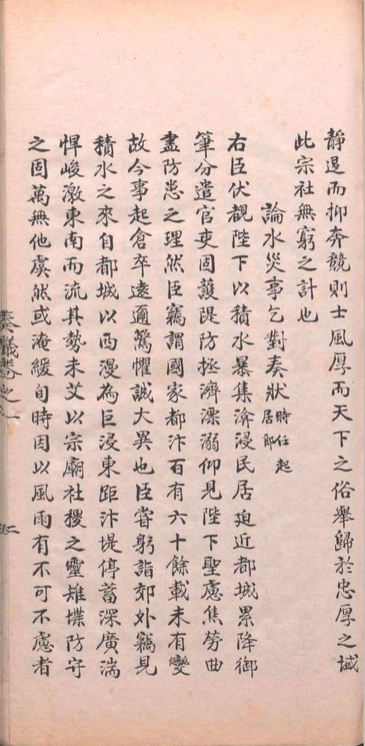 靜退而抑奔競則士風厚而天下之俗舉歸於忠厚之域
此宗社無窮之計也
論水災事乞對奏狀時任起居郎
右臣伏覩陛下以積水暴集渰浸民居廹近都城累降御
筆分遣官吏固護隄防拯濟漂溺仰見陛下聖慮焦勞曲
盡防患之理然臣竊謂國家都汴百有六十餘載未有變
故今事起倉卒遠邇驚懼誠大異也臣嘗躬詣郊外竊見
積水之來自都城以西漫為巨浸東距汴堤停蓄深廣湍
悍峻激東南而流其勢未艾以宗廟社稷之靈雉堞防守
之固萬無他虞然或淹緩旬時因以風雨有不可不慮者
奏議卷之
二